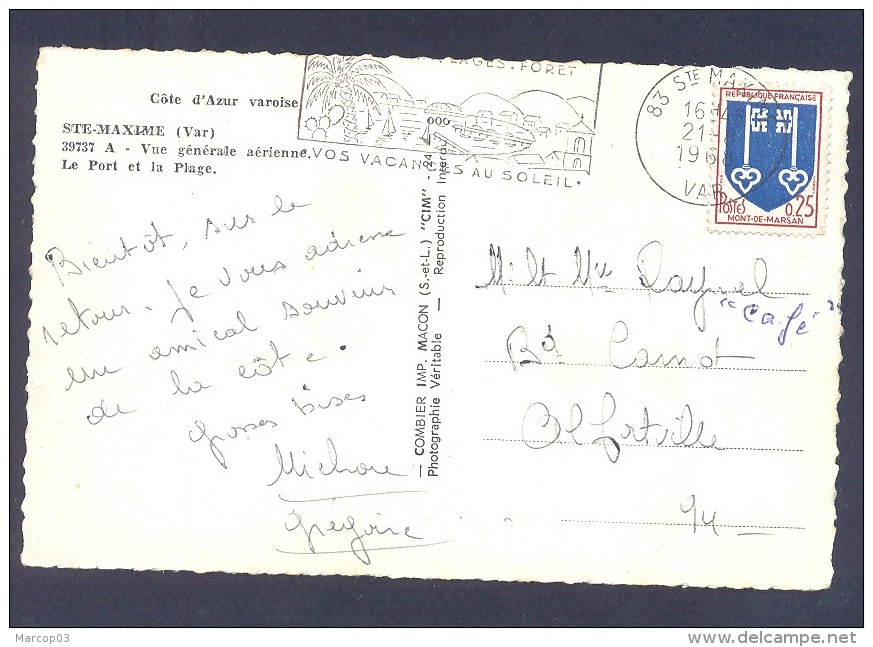 Côte d'Azur varoise
STE-MAXIME (Var)
39737 A - Vue générale aérienne.
Le Port et la Plage.
PLAGES-FORET
VOS VACANCES AU SOLEIL.
83 STE MAXIME
16H45
21-
1968
VAR
REPUBLIQUE FRANÇAISE
POSTES 0,25
MONT-DE-MARSAN
Bientôt, sur le
retour. Je vous adresse
un amical souvenir
de la côte.
grosses bises
Michou
Grégoire
— COMBIER IMP. MACON (S.-et-L.) "CIM" -
Photographie Véritable — Reproduction Interdite
Mr et Mme Raynal
"Café"
Bd Carnot
Alfortville
94
Marcop03
www.delcampe.net